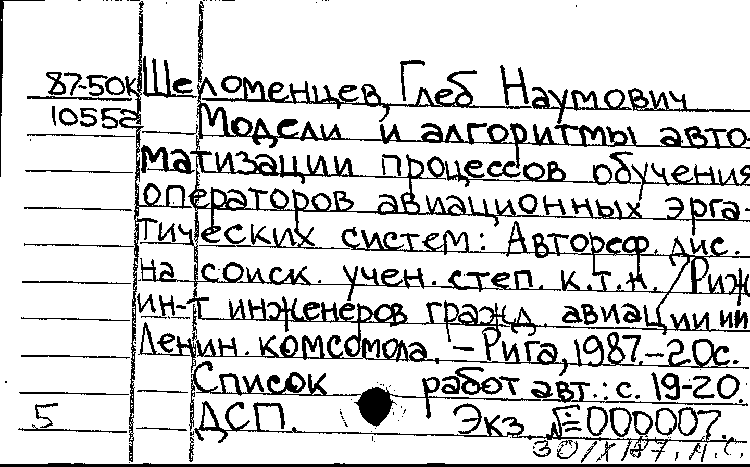 87-50к Шеломенцев, Глеб Наумович
10552 Модели и алгоритмы авто-
матизации процессов обучения
операторов авиационных эрга-
тических систем: Автореф. дис.
на соиск. учен. степ. к.т.н. / Риж
ин-т инженеров гражд. авиации им
Ленин. комсомола. – Рига, 1987. – 20с.
Список работ авт.: с. 19-20.
5 ДСП. Экз. № 000007.
30/X 187. М.С.